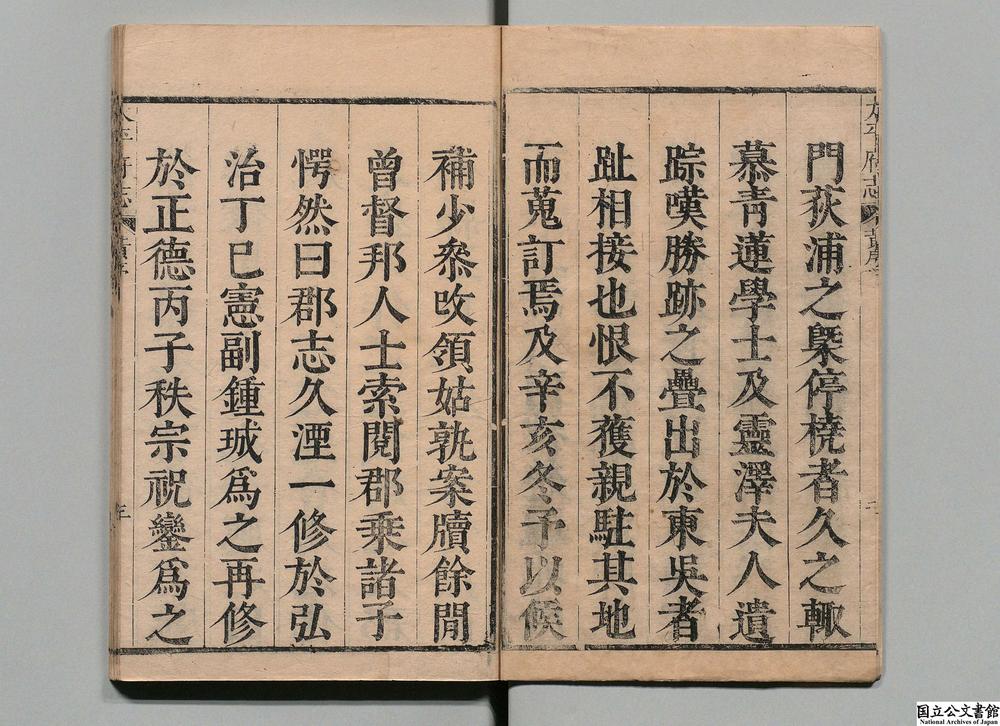 門荻浦之槩停橈者久之輙
慕青蓮學士及靈澤夫人遺
踪嘆勝跡之疊出於東吳者
趾相接也恨不獲親駐其地
而蒐訂焉及辛亥冬予以候
補少叅攺領姑孰案牘餘閒
曾督邦人士索閱郡乗諸子
愕然曰郡志久湮一修於弘
治丁巳憲副鍾珹爲之再修
於正德丙子秩宗祝鑾爲之
太平府志
國立公文書館
National Archives of Japan